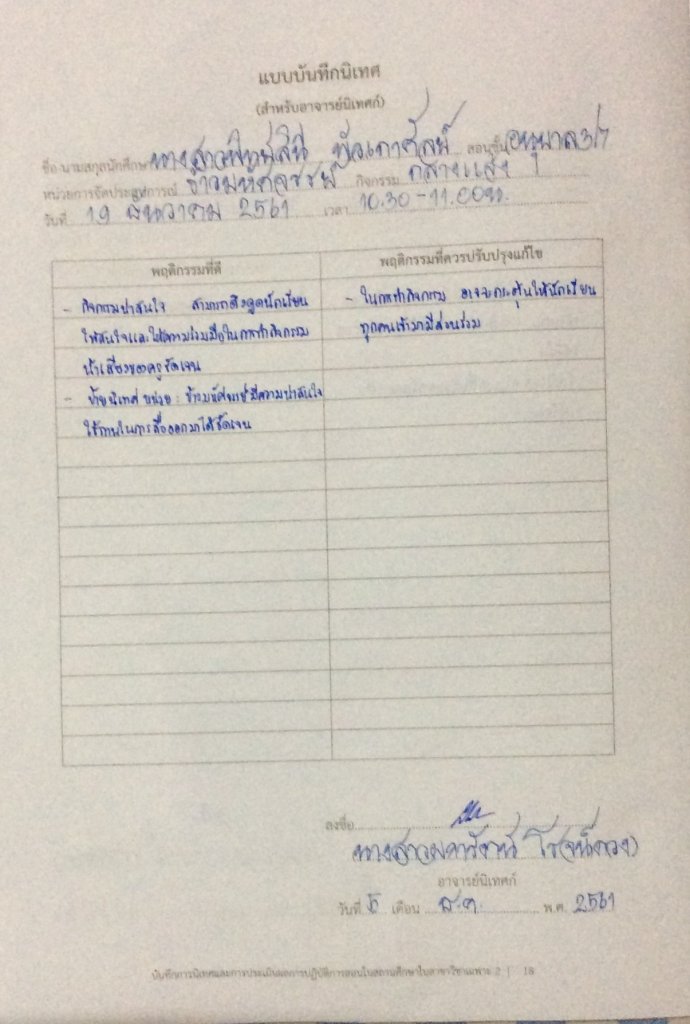 แบบบันทึกนิเทศ
(สำหรับอาจารย์นิเทศก์)
ชื่อ-นามสกุลนักศึกษา นางสาว สอนชั้น อนุบาล 3/7
หน่วยการจัดประสบการณ์ ข้าวมหัศจรรย์ กิจกรรม กลางแจ้ง
วันที่ 19 ธันวาคม 2561 เวลา 10.30-11.00น.
พฤติกรรมที่ดี
- กิจกรรมน่าสนใจ สามารถดึงดูดนักเรียน
ให้สนใจและให้ความร่วมมือในการทำกิจกรรม
น้ำเสียงของครูชัดเจน
- ป้ายนิเทศ หน่วย : ข้าวมหัศจรรย์ มีความน่าสนใจ
ใช้งานในการสื่อออกมาได้ชัดเจน
พฤติกรรมที่ควรปรับปรุงแก้ไข
- ในการทำกิจกรรม อาจจะกระตุ้นให้นักเรียน
ทุกคนเข้ามามีส่วนร่วม
ลงชื่อ
นางสาว
อาจารย์นิเทศก์
วันที่ เดือน ส.ค. พ.ศ. 2561
บันทึกการนิเทศและการประเมินผลการปฏิบัติการสอนในสถานศึกษาในสาขาวิชาเฉพาะ 2 | 18